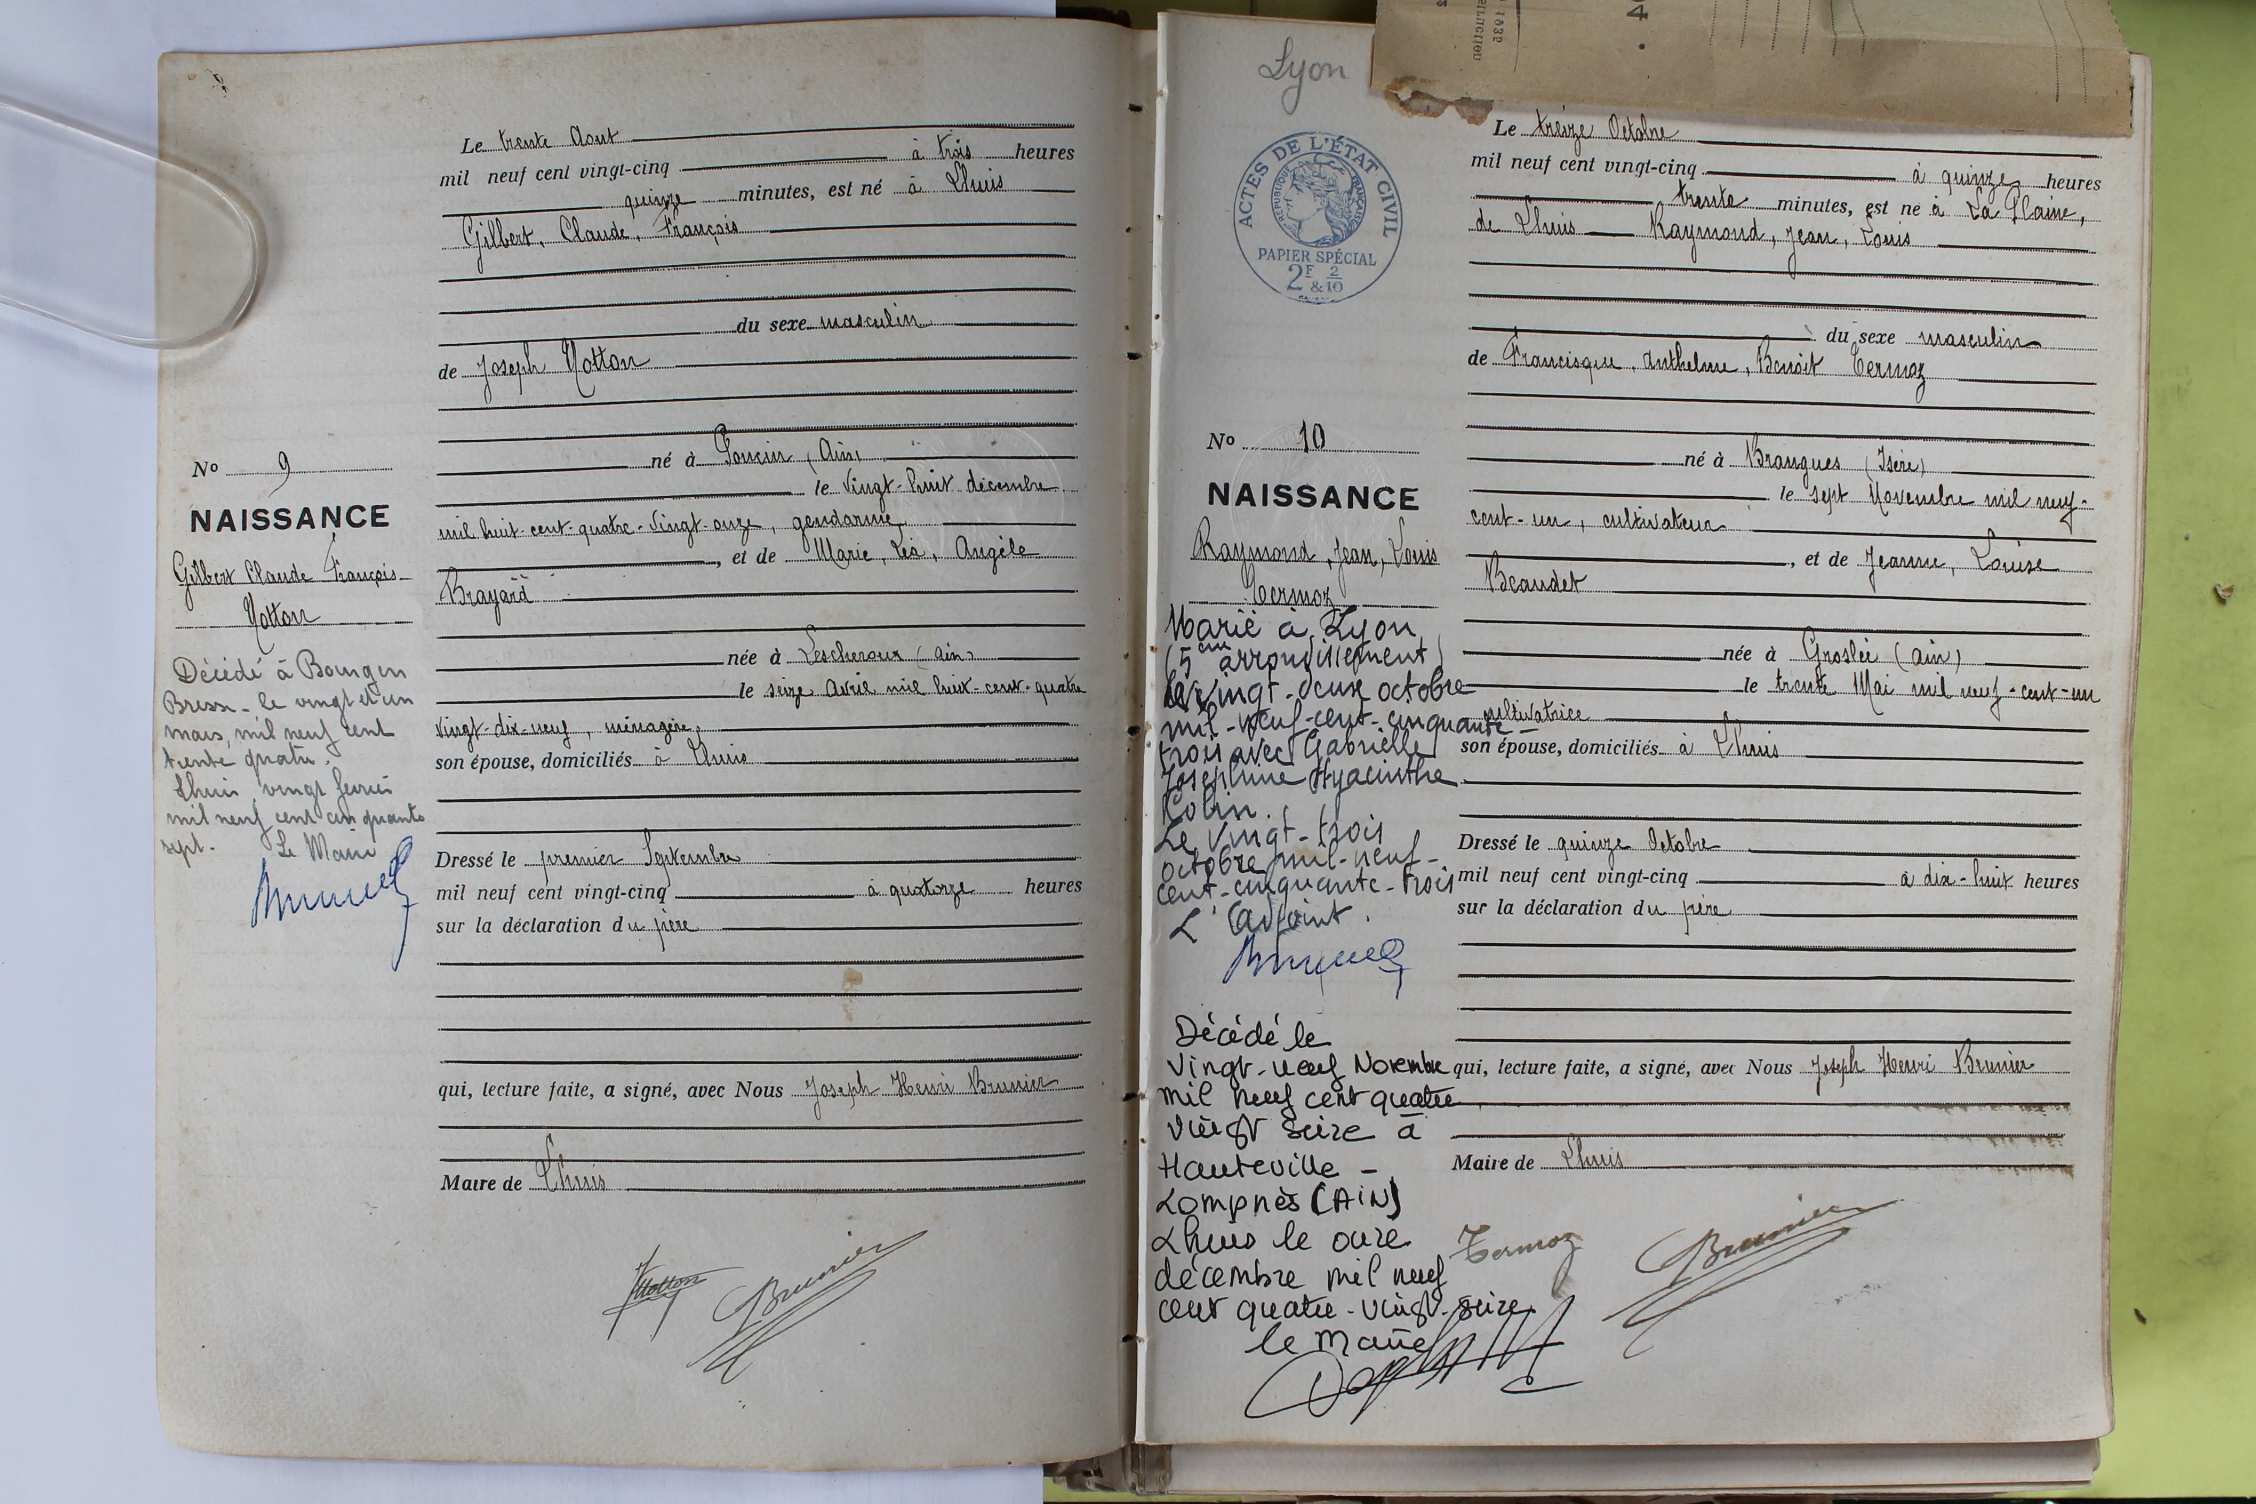 Le trente Aout
mil neuf cent vingt-cinq à trois heures
quinze minutes, est né à Lhuis
Gilbert, Claude, François
du sexe masculin
de Joseph Notton
né à Soucin (Ain)
le vingt-huit décembre
mil huit-cent-quatre-vingt-onze, gendarme
, et de Marie, Léa, Angèle
Brayard
née à Lescheroux (Ain)
le seize Avril mil huit-cent-quatre
vingt-dix-neuf, ménagère,
son épouse, domiciliés à Lhuis
Dressé le premier Septembre
mil neuf cent vingt-cinq à quatorze heures
sur la déclaration du père
qui, lecture faite, a signé, avec Nous Joseph Henri Brunier
Maire de Lhuis
Notton Brunier
No 9
NAISSANCE
Gilbert Claude François
Notton
Décédé à Bourg en
Bresse le vingt et un
mars, mil neuf cent
trente quatre.
Lhuis vingt février
mil neuf cent cinquante
sept. Le Maire
Lyon
ACTES DE L'ÉTAT CIVIL
RÉPUBLIQUE FRANÇAISE
PAPIER SPÉCIAL
2F & 2/10
No 10
NAISSANCE
Raymond, Jean, Louis
Termoz
Marié à Lyon
(5em arrondissement)
le vingt-deux octobre
mil-neuf-cent-cinquante-
trois avec Gabrielle
Joséphine Hyacinthe
Colin.
Le vingt-trois
octobre mil-neuf-
cent-cinquante-trois
L'Adjoint.
Décédé le
vingt-neuf Novembre
mil neuf cent quatre
vingt seize à
Hauteville-
Lompnès (AIN)
Lhuis le onze
décembre mil neuf
cent quatre-vingt-seize.
le Maire
Le treize Octobre
mil neuf cent vingt-cinq à quinze heures
trente minutes, est né à La Plaine,
de Lhuis Raymond, Jean, Louis
du sexe masculin
de Francisque, Anthelme, Benoît Termoz
né à Brangues (Isère)
le sept Novembre mil neuf-
cent-un, cultivateur
, et de Jeanne, Louise
Beaudet
née à Groslée (Ain)
le trente Mai mil neuf-cent-un
cultivatrice
son épouse, domiciliés à Lhuis
Dressé le quinze Octobre
mil neuf cent vingt-cinq à dix-huit heures
sur la déclaration du père
qui, lecture faite, a signé, avec Nous Joseph Henri Brunier
Maire de Lhuis
Termoz Brunier